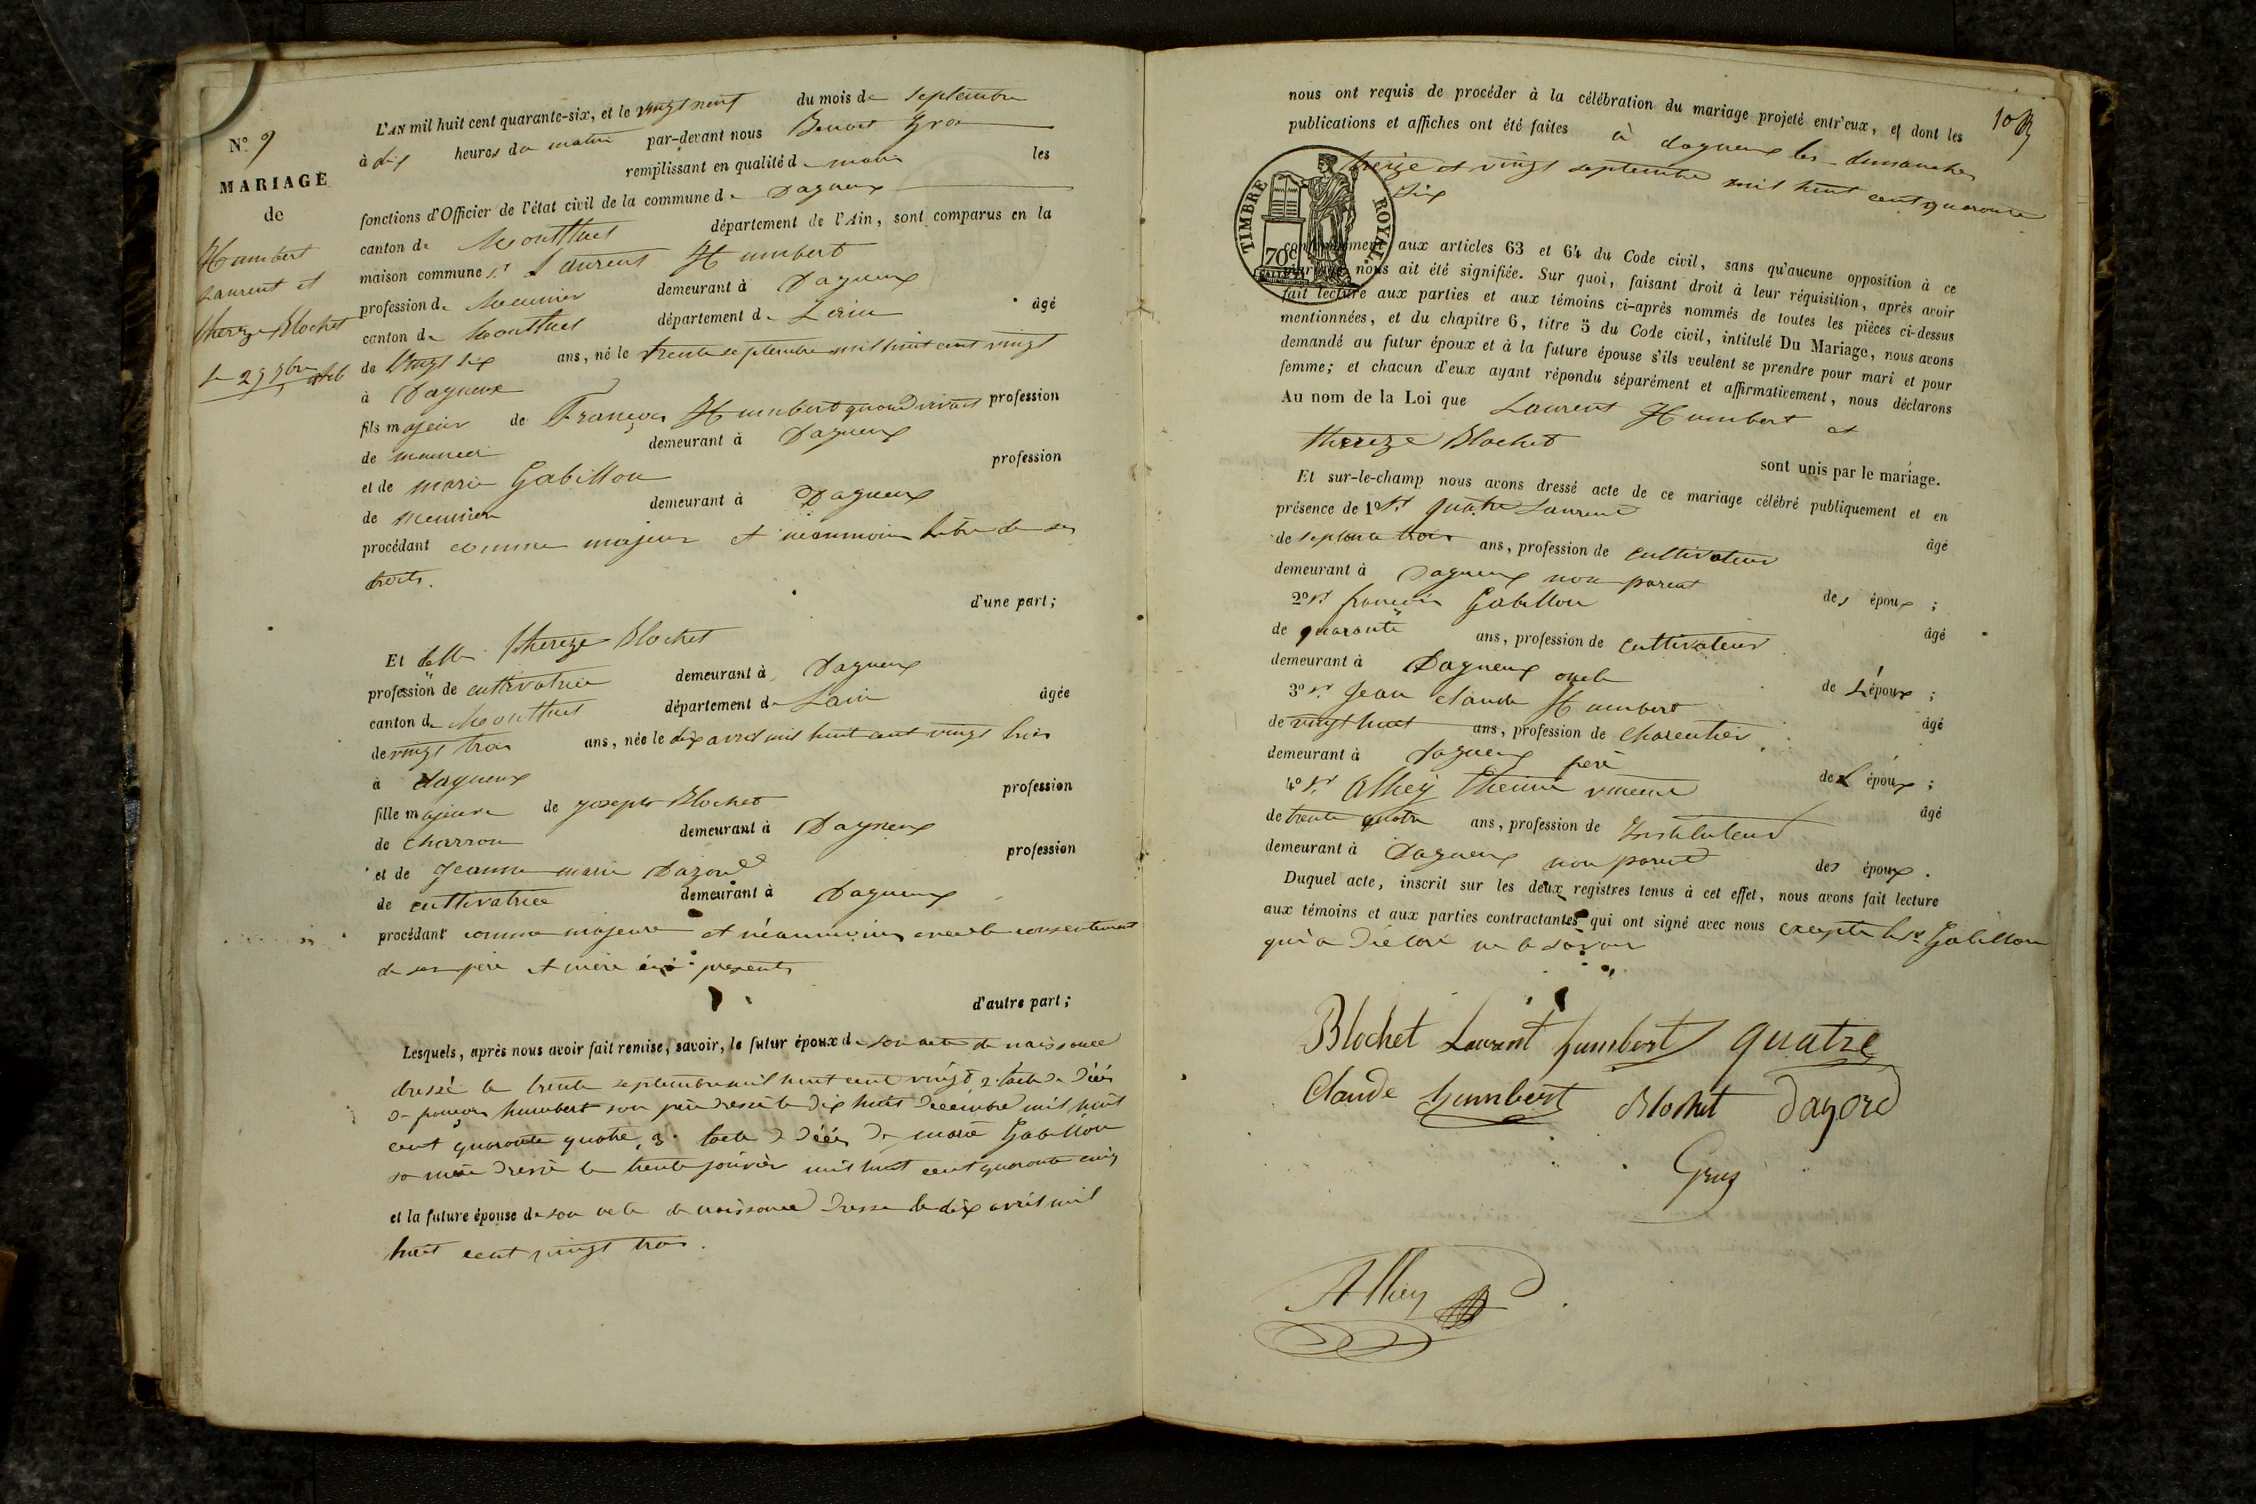 N.o 9
MARIAGE
de
Humbert
Laurent et
thereze Blochet
L'AN mil huit cent quarante-six, et le vingt neuf du mois de septembre
à dix heures du matin par-devant nous Benoit
remplissant en qualité de maire les
fonctions d'Officier de l'état civil de la commune de Dagneux
canton de Montluel département de l'Ain, sont comparus en la
maison commune sr Laurent Humbert
profession de Meunier demeurant à Dagneux
canton de Montluel département de L'ain âgé
de Vingt six ans, né le trente septembre mil huit cent vingt
à Dagneux
fils majeur de François Humbert quand vivait profession
de meunier demeurant à Dagneux
et de marie Gabillon profession
de meunière demeurant à Dagneux
procédant comme majeur et néanmoins libre de ses
droits.
d'une part;
Et delle thereze Blochet
profession de cultivatrice demeurant à Dagneux
canton de Montluel département de Lain âgée
de vingt trois ans, née le dix avril mil huit cent vingt trois
à dagneux
fille majeure de joseph Blochet profession
de charron demeurant à Dagneux
et de jeanne marie Dazord profession
de cultivatrice demeurant à Dagneux
procédant comme majeure et néanmoins avec le consentement
de ses père et mère ici présents
d'autre part;
Lesquels, après nous avoir fait remise, savoir, le futur époux de son acte de naissance
dressé le trente septembre mil huit cent vingt, 2. l'acte de décés
de françois humbert son père dressé le dix huit décembre mil huit
cent quarante quatre, 3. l'acte de décés de marie Gabillon
sa mère dressé le trente janvier mil huit cent quarante cinq
et la future épouse de son acte de naissance dressé le dix avril mil
huit cent vingt trois.
nous ont requis de procéder à la célébration du mariage projeté entr'eux, et dont les
publications et affiches ont été faites à dagneux les dimanches
treize et vingt septembre mil huit cent quarante
six
TIMBRE ROYAL
70c
conformément aux articles 63 et 64 du Code civil, sans qu'aucune opposition à ce
mariage nous ait été signifiée. Sur quoi, faisant droit à leur réquisition, après avoir
fait lecture aux parties et aux témoins ci-après nommés de toutes les pièces ci-dessus
mentionnées, et du chapitre 6, titre 5 du Code civil, intitulé Du Mariage, nous avons
demandé au futur époux et à la future épouse s'ils veulent se prendre pour mari et pour
femme; et chacun d'eux ayant répondu séparément et affirmativement, nous déclarons
Au nom de la Loi que Laurent Humbert et
thereze Blochet
sont unis par le mariage.
Et sur-le-champ nous avons dressé acte de ce mariage célébré publiquement et en
présence de 1o sr quatre Laurent âgé
de septante trois ans, profession de cultivateur
demeurant à Dagneux non parent des époux ;
2o sr françois Gabillon âgé
de quarante ans, profession de cultivateur
demeurant à Dagneux oncle de L'époux ;
3o sr jean claude Humbert âgé
de vingt huit ans, profession de charentier
demeurant à Dagneux frere de L'époux ;
4o sr Alhey vincent âgé
de trente quatre ans, profession de Instituteur
demeurant à Dagneux non parent des époux.
Duquel acte, inscrit sur les deux registres tenus à cet effet, nous avons fait lecture
aux témoins et aux parties contractantes qui ont signé avec nous excepté le sr Gabillon
qui a déclaré ne le savoir
Blochet Laurent humbert quatre
Claude humbert Blochet Dazord
Alhey